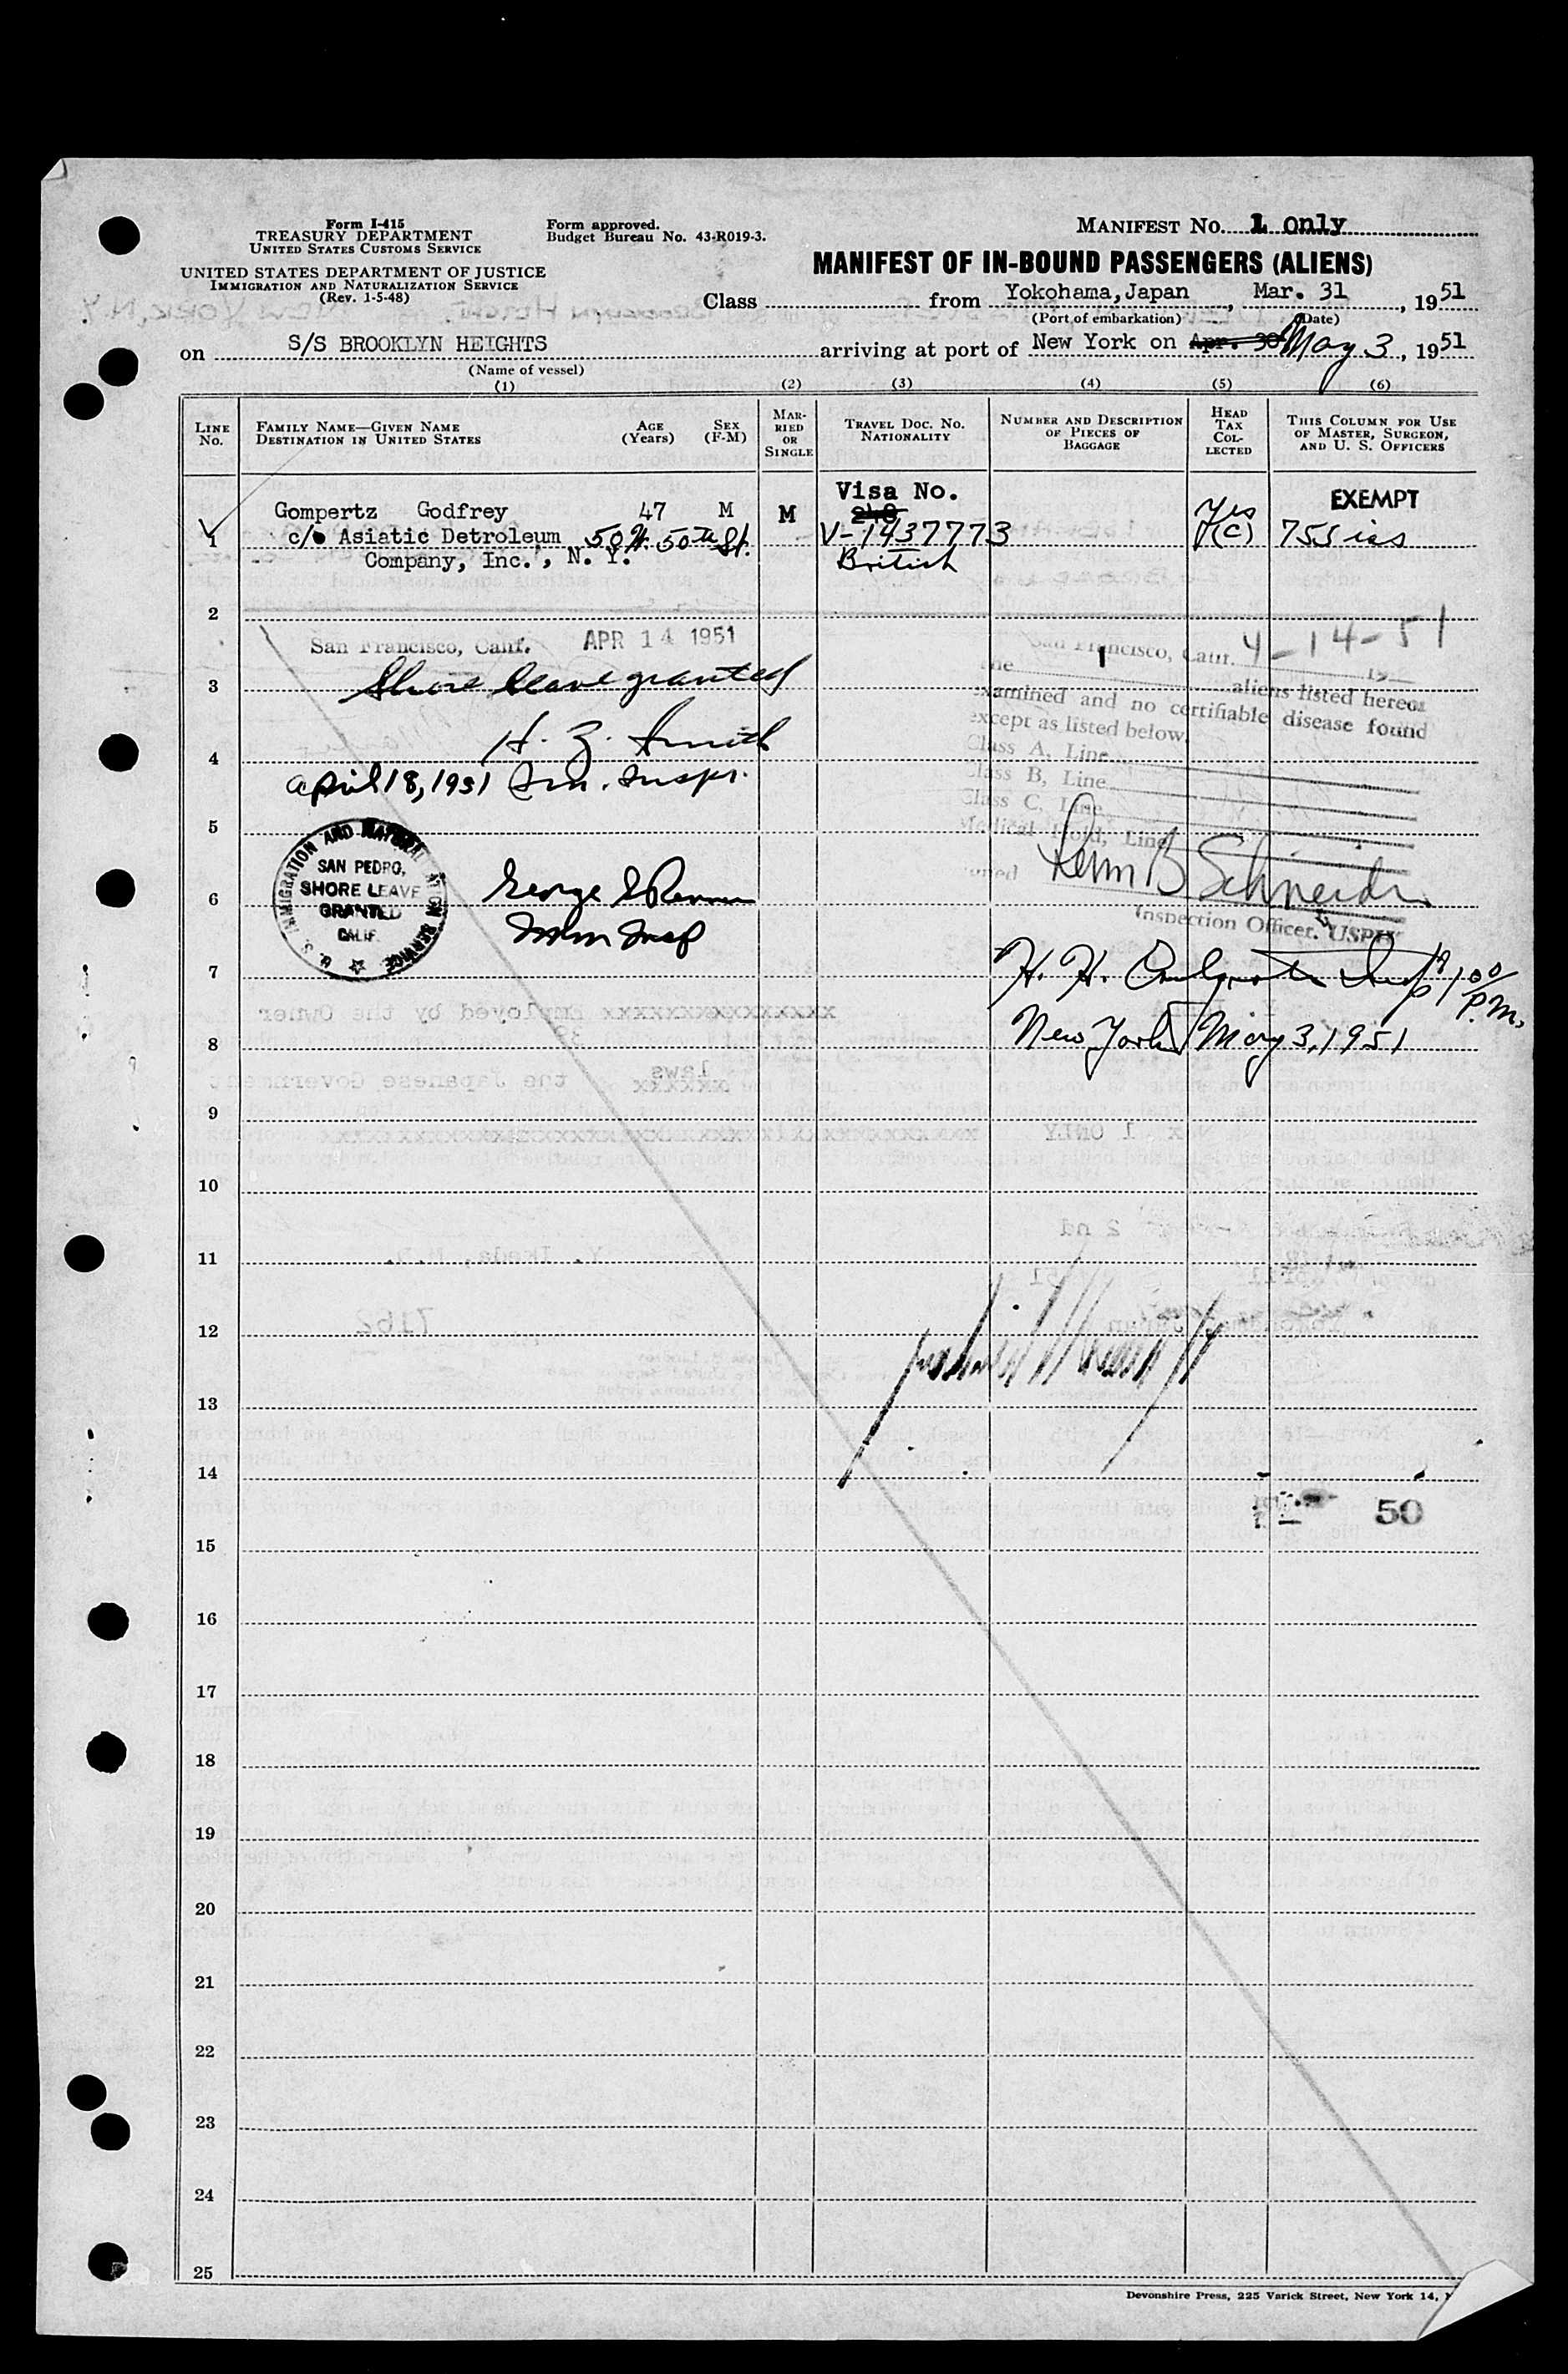 Form I-415
TREASURY DEPARTMENT
UNITED STATES CUSTOMS SERVICE
UNITED STATES DEPARTMENT OF JUSTICE
IMMIGRATION AND NATURALIZATION SERVICE
(Rev. 1-5-48)
Form approved.
Budget Bureau No. 43-R019-3.
MANIFEST No. 1 only
MANIFEST OF IN-BOUND PASSENGERS (ALIENS)
Class from Yokohama, Japan, Mar. 31, 1951
(Port of embarkation) (Date)
on S/S BROOKLYN HEIGHTS arriving at port of New York on Apr. 30 May 3, 1951
(Name of vessel)
(1) (2) (3) (4) (5) (6)
LINE No.
FAMILY NAME—GIVEN NAME
DESTINATION IN UNITED STATES
AGE (Years)
SEX (F-M)
MARRIED OR SINGLE
TRAVEL DOC. No.
NATIONALITY
NUMBER AND DESCRIPTION
OF PIECES OF
BAGGAGE
HEAD
TAX
COLLECTED
THIS COLUMN FOR USE
OF MASTER, SURGEON,
AND U. S. OFFICERS
1
Gompertz Godfrey 47 M M
c/o Asiatic Detroleum 50 W. 50th St.
Company, Inc., N. Y.
Visa No.
248
V-1437773
British
Yes
(C)
EXEMPT
755
2
San Francisco, Calif. APR 14 1951
3
Shore leave granted
4
H. Z. Smith
April 18, 1951 Im. Inspr.
5
U. S. IMMIGRATION AND NATURALIZATION SERVICE
SAN PEDRO,
SHORE LEAVE
GRANTED
CALIF.
6
George
Imm Insp
San Francisco, Calif. 4-14-51
19
1 aliens listed hereon
examined and no certifiable disease found
except as listed below.
Class A, Line
Class B, Line
Class C, Line
Medical Hold, Line
B Schneider
Inspection Officer, USPHS
7
H. H. Insp 1:00 P.M.
8
New York May 3, 1951
9
10
11
12
13
14
50
15
16
17
18
19
20
21
22
23
24
25
Devonshire Press, 225 Varick Street, New York 14,